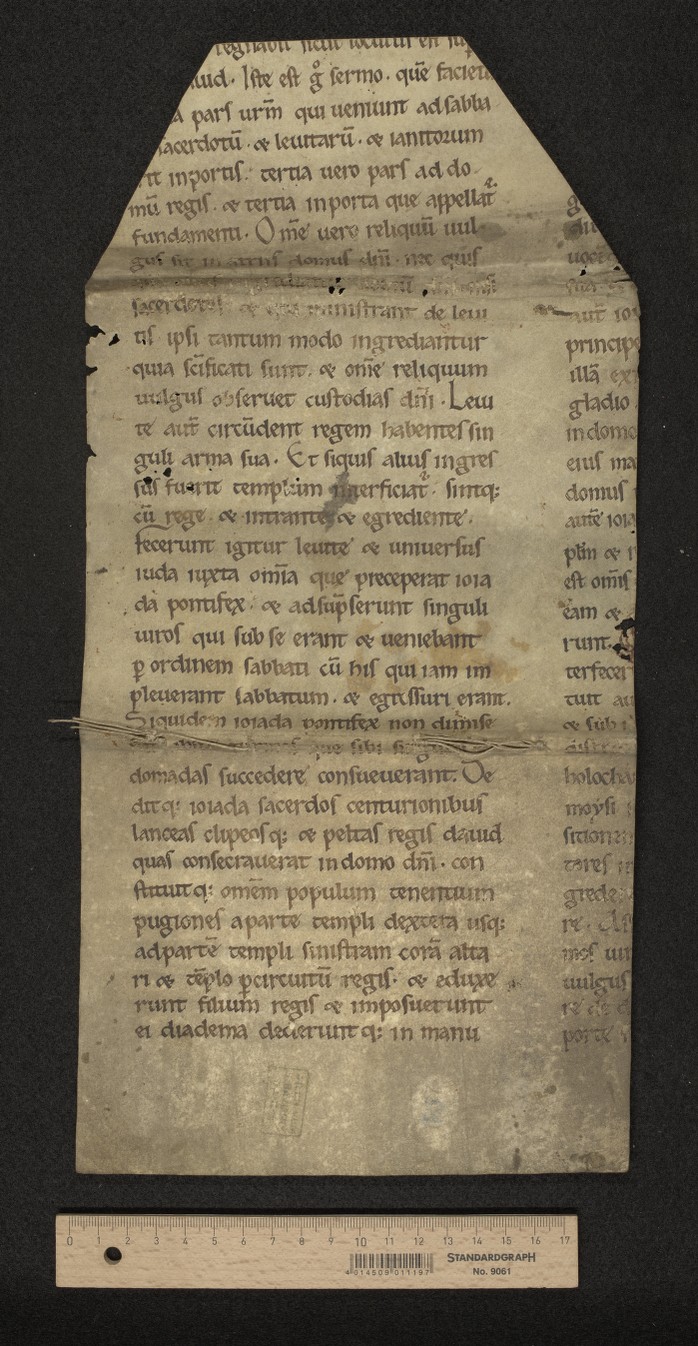 regnabit sicut locutus est sup
uid · Iste est g̊ sermo · quē faciet
a pars urm̄ qui ueniunt adsabba
acerdotū · & leuitarū · & ianitorum
rit inportis · tertia uero pars ad do
mū regis · & tertia inporta que appellat᷑
fundamenti · Om̄e uero reliquū uul
gus sit in atriis domus dn̄i · nec quis
sacerdotes & qui ministrant de leui
tis ipsi tantum modo ingrediantur
quia sc̄ificati sunt · & om̄e reliquum
uulgus obseruet custodias dn̄i · Leui
te aut̄ circūdent regem habentes sin
guli arma sua · Et siquis alius ingres
sus fuerit templum interficiat᷑ · sintq:
cū rege · & intrante & egrediente ·
fecerunt igitur leuite & uniuersus
iuda iuxta om̄ia que preceperat ioia
da pontifex · & adsūpserunt singuli
uiros qui sub se erant & ueniebant
p̱ ordinem sabbati cū his qui iam im
pleuerant sabbatum · & egressuri erant.
Siquidem ioiada pontifex non dimise
que sibi
domadas succedere consueuerant. De
ditq: ioiada sacerdos centurionibus
lanceas clipeosq: & peltas regis dauid
quas consecrauerat indomo dn̄i · con
stituitq: omēm populum tenentium
pugiones aparte templi dextera usq:
adpartē templi sinistram corā alta
ri & tēplo p̱circuitū regis · & eduxe
runt filium regis & imposuerunt
ei diadema dederuntq: in manu
g
uocē
aut̄ ioi
principe
illā ex
gladio
indomo
eius ma
domus
autē ioia
pl̄m & r
est om̄is
eam &
runt
terfecer
tuit au
& sub
holocha
moysi
sitionem
tores in
grede
re ·
mos uir
uulgus
re de d
porte
STANDARDGRAPH
No. 9061
0 1 2 3 4 5 6 7 8 9 10 11 12 13 14 15 16 17
4 014509 011197